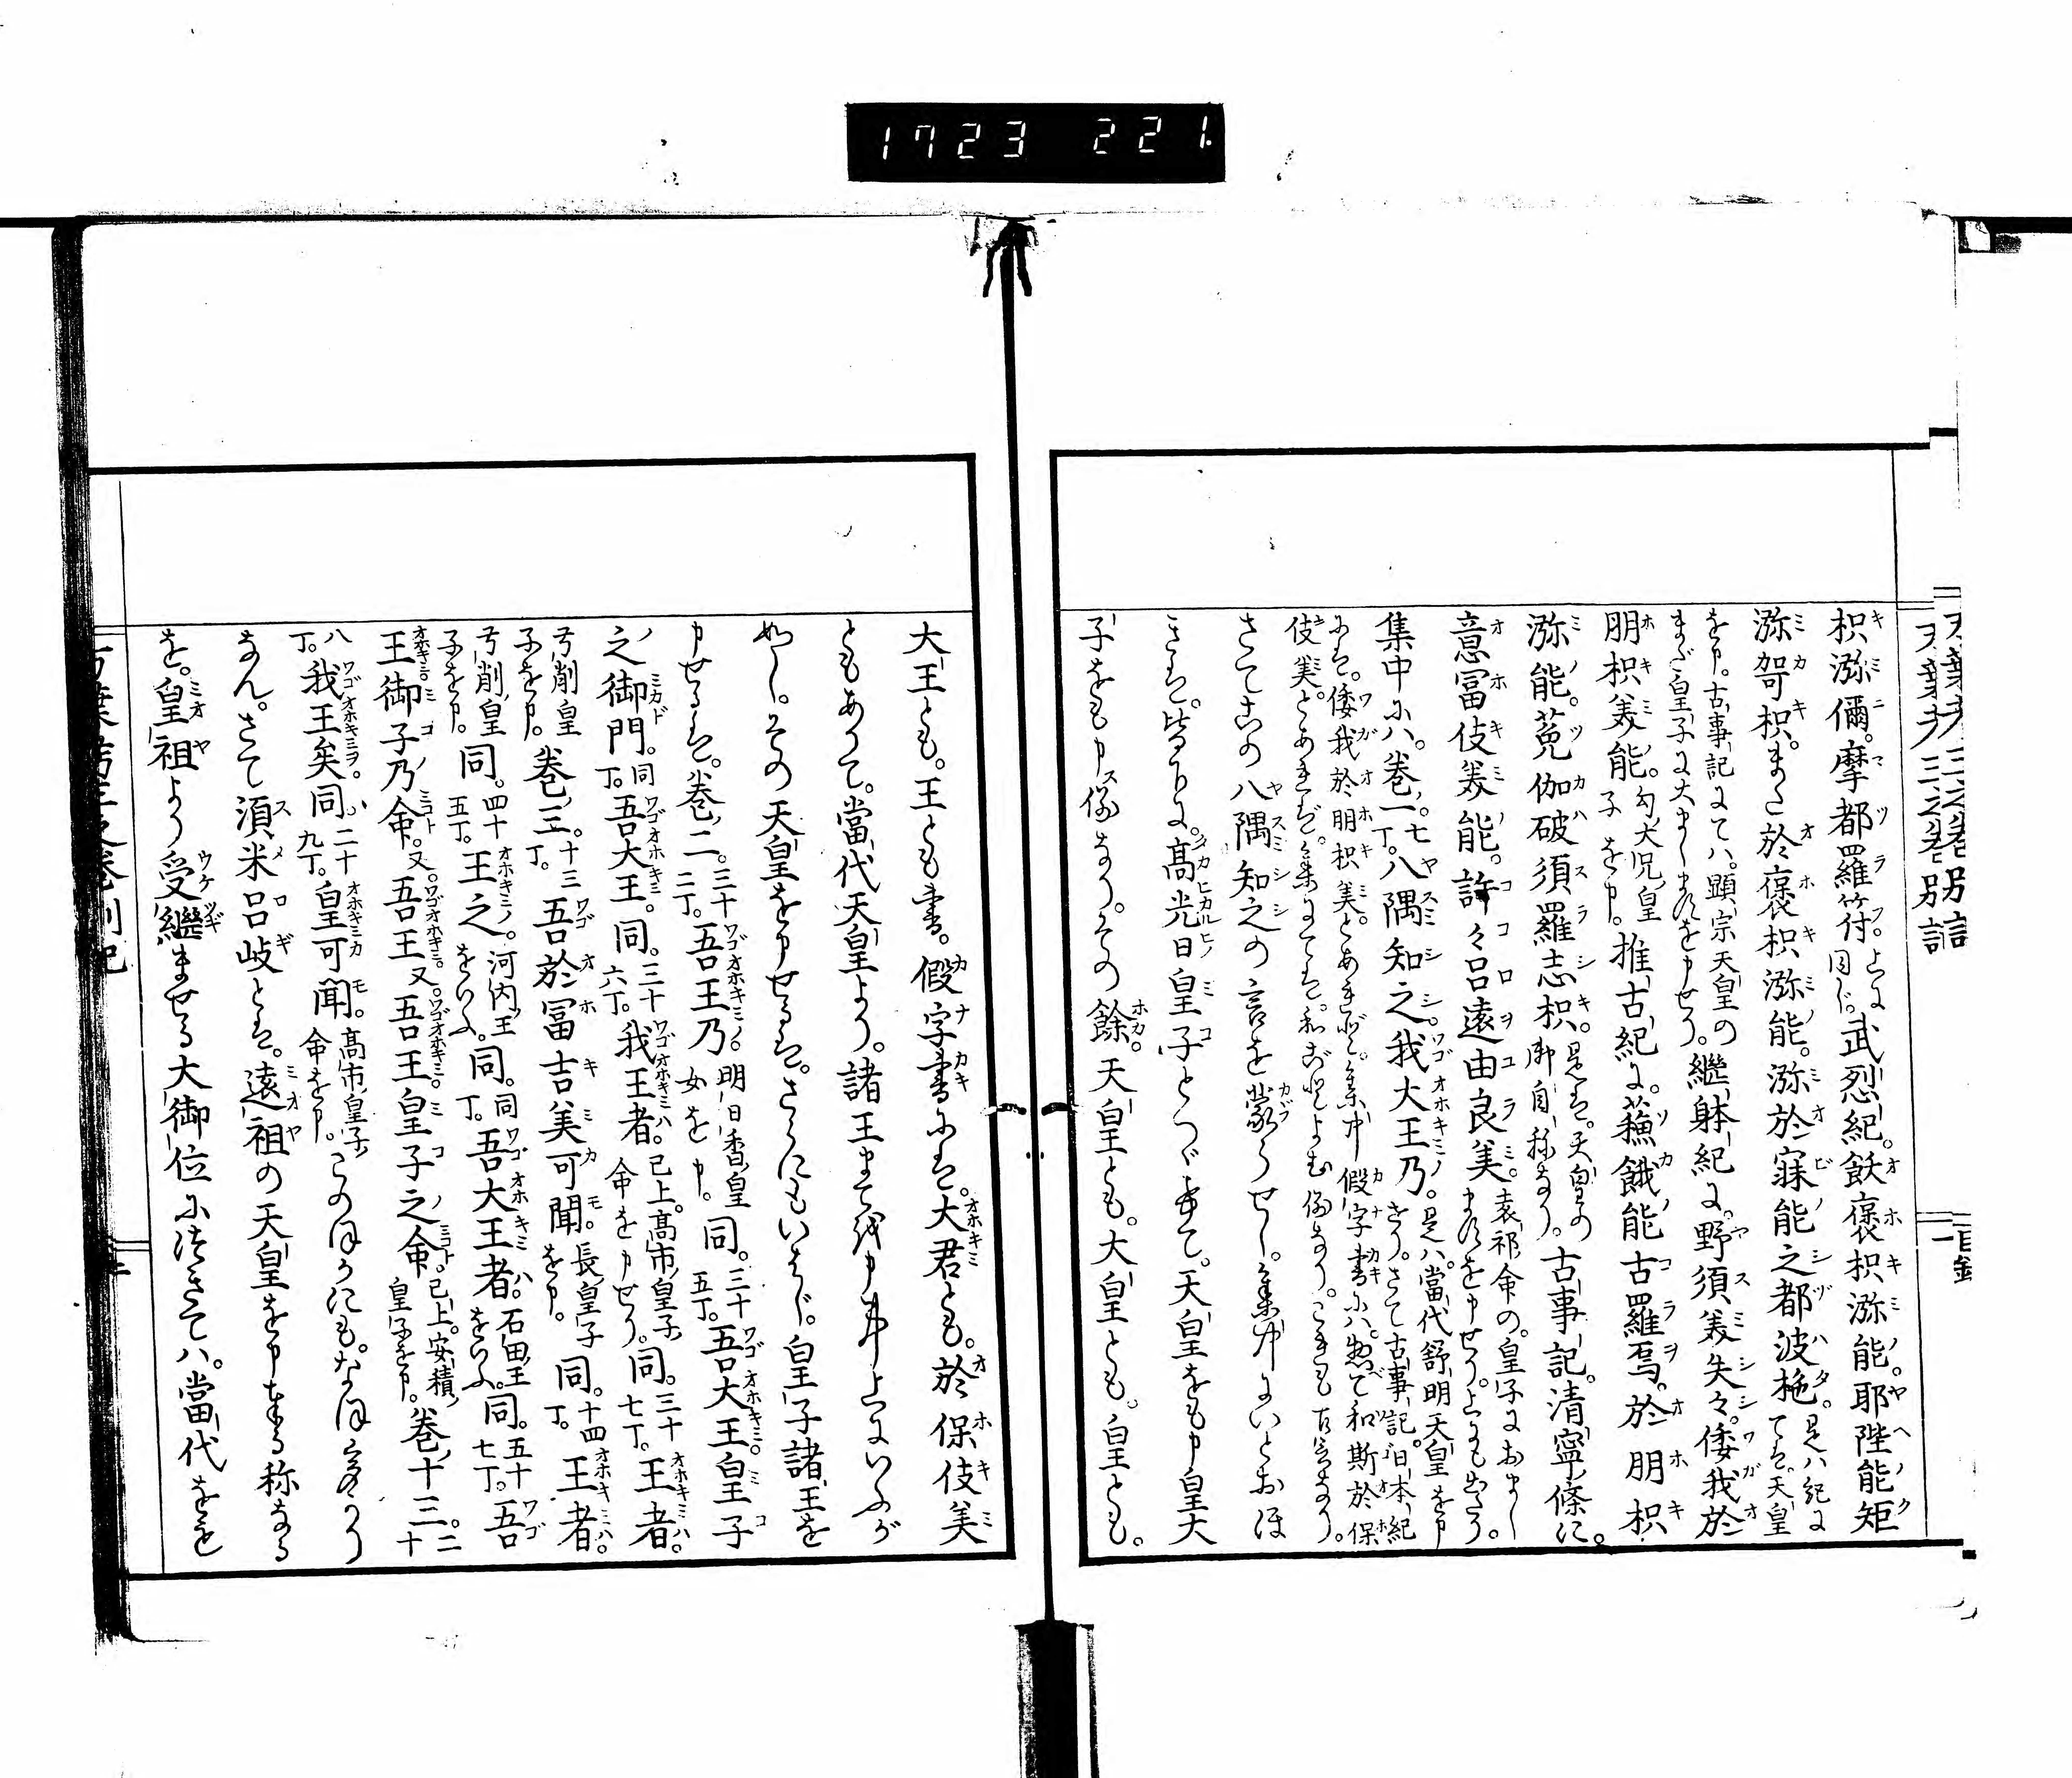 1723 221.
枳瀰儞。摩都羅符。上に同じ。武烈紀。飫褒枳瀰能。耶陛能矩
瀰哿枳。また於褒枳瀰能。瀰於寐能之都波拖。是ハ紀に てハ。天皇
を申。古事記にてハ。顯宗天皇の まだ皇子に大ましますを申せり。繼躰紀に。野須美矢々。倭我於
朋枳美能。勾大兄皇 子を申。推古紀に。蘓餓能古羅烏。於朋枳
瀰能。菟伽破須羅志枳。是は。天皇の 御自稱なり。古事記。清寧條に。
意冨伎美能。許々呂遠由良美。袁祁命の。皇子におまし ますを申せり。上にも出たり。
集中にハ。巻一。七丁。八隅知之。我大王乃。是ハ。當代舒明天皇を申 せり。さて古事記。日本紀
には。倭我於朋枳美。とあれど。集中假字書にハ。惣て和期於保
伎美。とあれば。集にては。和ごとよむ例なり。これも古言なり。
さてこの八隅知之の言を蒙らせし。集中にいとおほ
きは。皆める也。高光日皇子とつゞけて。天皇をも申皇太
子をも申す例なり。その餘。天皇とも。大皇とも。皇とも。
大王とも。王とも書。假字書には。大君とも。於保伎美
ともありて。當代天皇より。諸王まで政申事上にいふが
如し。その天皇を申せるは。さらにもいはじ。皇子諸王を
申せるは。巻二。三十二丁。吾王乃。明日香皇女を申。同。三十五丁。吾大王皇子
之御門。同丁。吾大王。同。三十六丁。我王者。已上。高市皇子命を申せり。同。三十七丁。王者。
弓削皇子を申。巻三。十三丁。吾於冨吉美可聞。長皇子を申。同。十四丁。王者。
弓削皇子を申。同。四十五丁。王之。河内王をいふ。同。同丁。吾大王者。石田王をいふ。同。五十七丁。吾
王御子乃命。又。吾王。又。吾王。皇子之命。已上。安積皇子を申。巻十三。二十
八丁。我王矣。同。二十九丁。皇可聞。高市皇子命を申。このほかにも。なほ多かり
なん。さて須米呂岐とは。遠祖の天皇を申奉る称なる
を。皇祖より受繼ませる大御位につきては。當代をも